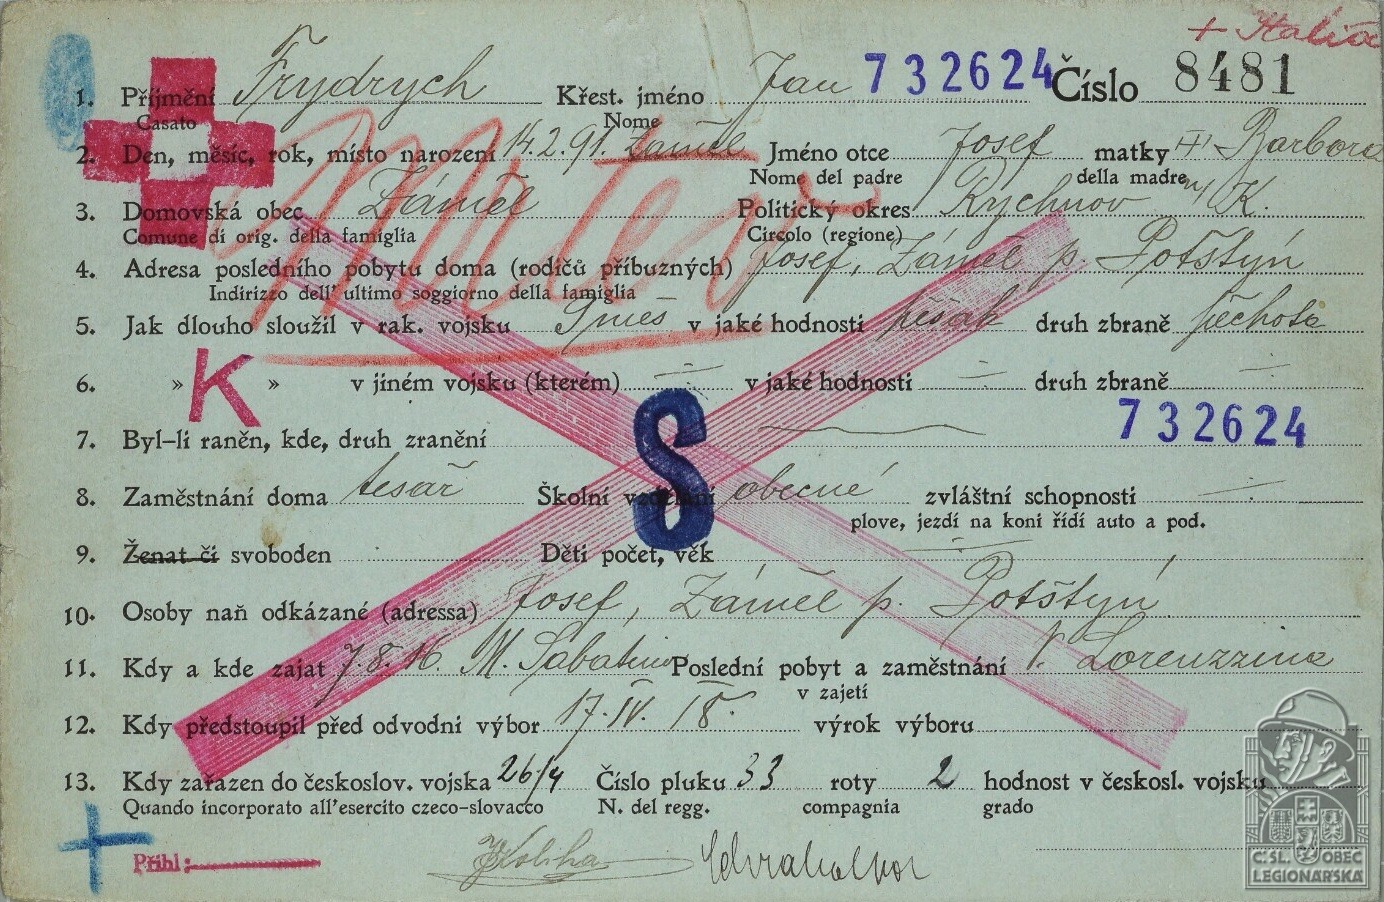 + Italia
1. Příjmení Frydrych Křest. jméno Jan 732624 Číslo 8481
Casato Nome
2. Den, měsíc, rok, místo narození 14.2.91. Záměl Jméno otce Josef matky Barbora
Nome del padre della madre
3. Domovská obec Záměl Politický okres Rychnov n/K.
Comune di orig. della famiglia Circolo (regione)
4. Adresa posledního pobytu doma (rodičů příbuzných) Josef, Záměl p. Potštýn
Indirizzo dell' ultimo soggiorno della famiglia
5. Jak dlouho sloužil v rak. vojsku 5 měs v jaké hodnosti pěšák druh zbraně pěchota
6. » K » v jiném vojsku (kterém) v jaké hodnosti druh zbraně
732624
7. Byl-li raněn, kde, druh zranění
S
8. Zaměstnání doma tesař Školní vzdělání obecné zvláštní schopnosti
plove, jezdí na koni řídí auto a pod.
9. Ženat či svoboden Děti počet, věk
10. Osoby naň odkázané (adressa) Josef, Záměl p. Potštýn
11. Kdy a kde zajat 7.8.16. M. Sabatino Poslední pobyt a zaměstnání Lorenzzina
v zajetí
12. Kdy předstoupil před odvodni výbor 17. IV. 18. výrok výboru
13. Kdy zařazen do českoslov. vojska 26/4 Číslo pluku 33 roty 2 hodnost v českosl. vojsku
Quando incorporato all'esercito czeco-slovacco N. del regg. compagnia grado
Přihl:
Č:SL. OBEC
LEGIONÁŘSKÁ